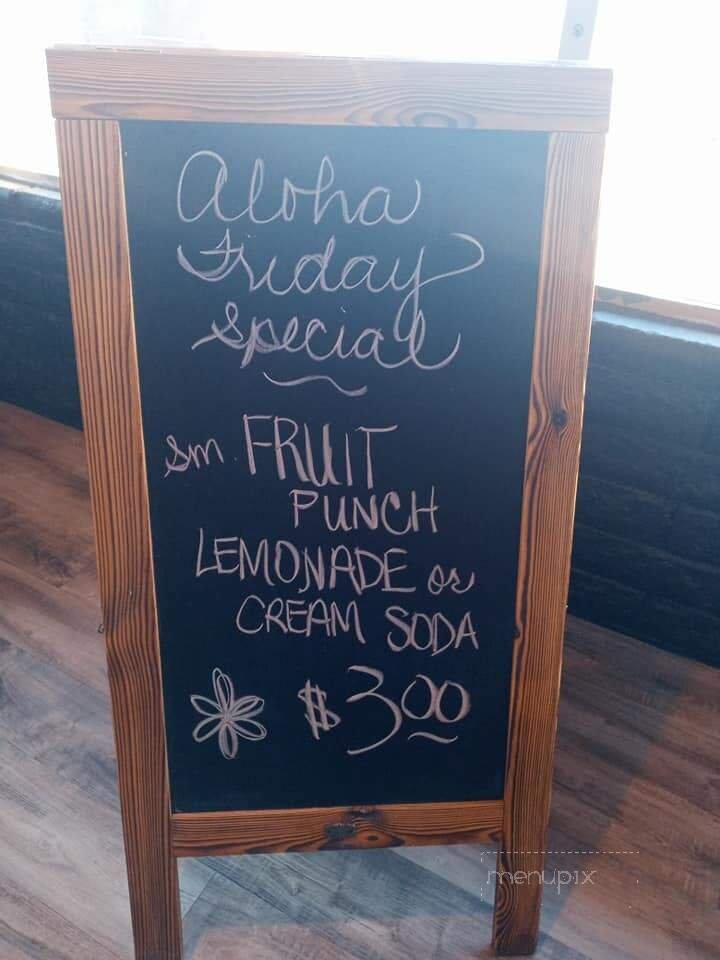 Aloha
Friday
Special
Sm. FRUIT
PUNCH
LEMONADE or
CREAM SODA
$3.00
menupix